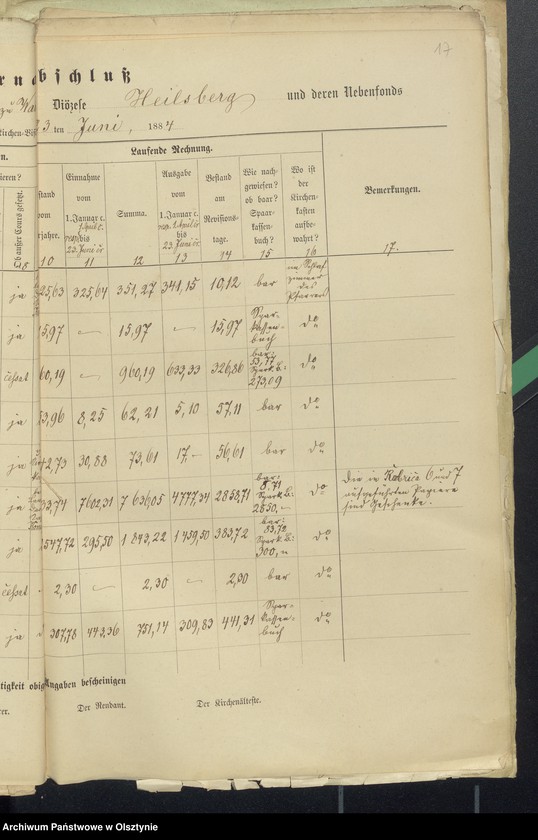 17
rnabschluß
Diözese Heilsberg und deren Nebenfonds
23 ten Juni, 1884
Laufende Rechnung.
Einnahme vom 1. Januar c. bis 23. Juni cr
Summa.
Ausgabe vom 1. Januar c. bis 23. Juni cr
Bestand am Revisions-tage.
Wie nach-gewiesen? ob baar? Spaar-kassen-buch?
Wo ist der Kirchen-kasten aufbe-wahrt?
Bemerkungen.
10 11 12 13 14 15 16 17.
ja 25,63 325,64 351,27 341,15 10,12 bar im Schlaf-zimmer des Pfarrers
ja 5,97 — 15,97 — 15,97 Spar-kassen-buch do
60,19 — 960,19 633,33 326,86 bar: 53,77 Spark.B.: 273,09 do
ja 53,96 8,25 62,21 5,10 57,11 bar do
ja 42,73 30,88 73,61 17,— 56,61 bar do
ja 33,74 7602,31 7 636,05 4777,34 2858,71 bar: 8,71 Spark.B.: 2850,— do
Die in Rubrik 6 und 7
aufgeführten Papiere
sind Geschenke.
ja 1547,72 295,50 1 843,22 1 459,50 383,72 bar: 83,72 Spark.B.: 300,— do
2,30 — 2,30 — 2,30 bar do
ja 307,78 443,36 751,14 309,83 441,31 Spar-kassen-buch do
tigkeit obig Angaben bescheinigen
Der Rendant.
Der Kirchenälteste.
Archiwum Państwowe w Olsztynie